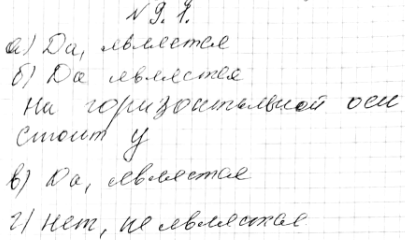 № 9.1.
а) Да, является
б) Да является
На горизонтальной оси
стоит у
в) Да, является
г) Нет, не является